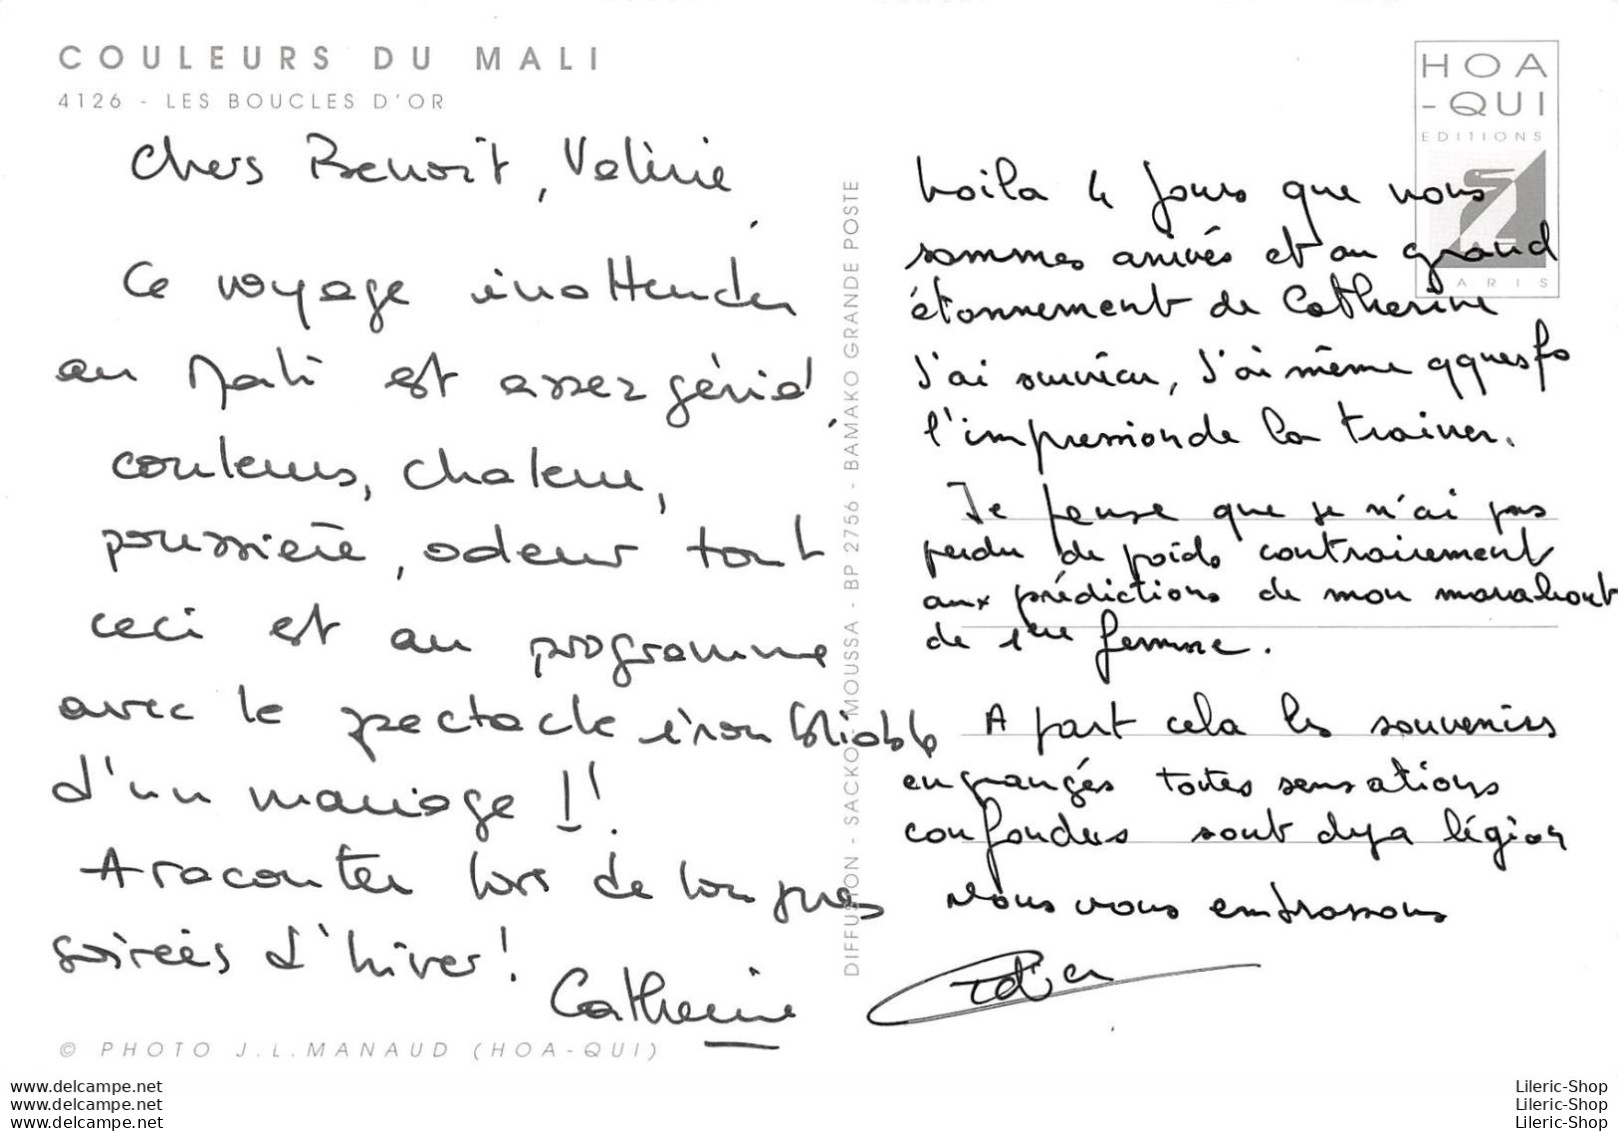 COULEURS DU MALI
4126 - LES BOUCLES D'OR
Chers Benoit, Valérie,
Ce voyage inattendu
au Mali est assez génial,
couleurs, chaleur,
poussière, odeur tout
ceci est au programme
avec le spectacle inoubliable
d'un mariage !!
A raconter lors de longues
soirées d'hiver !
Catherine
© PHOTO J.L. MANAUD (HOA-QUI)
DIFFUSION - SACKO MOUSSA - BP 2756 - BAMAKO GRANDE POSTE
HOA
-QUI
EDITIONS
PARIS
Voila 4 jours que nous
sommes arrivés et au grand
étonnement de Catherine
J'ai survécu, J'ai même qques fo
l'impression de la trainer.
Je pense que je n'ai pas
perdu de poids contrairement
aux prédictions de mon marabout
de 1ere femme.
A part cela les souvenirs
engrangés toutes sensations
confondues sont deja légion
Nous vous embrassons
Didier
www.delcampe.net
www.delcampe.net
www.delcampe.net
Lileric-Shop
Lileric-Shop
Lileric-Shop